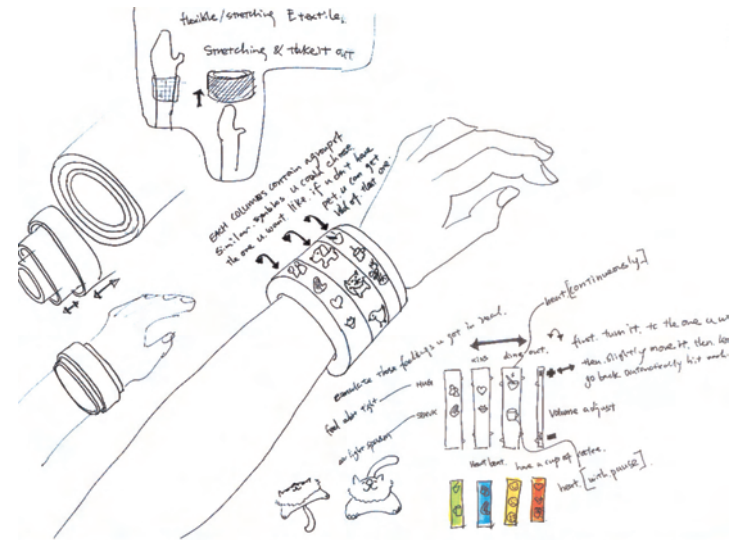 flexible/stretching Etextile.
Stretching & take it out
Each columns contain a group of
similar. symbols u could chose
the one u want like. if u don't have
pet, u can get
rid of that one.
heart [continuously.]
first. turn it. to the one u
then. slightly move it, then
go back automatically hit and.
emulate those feelings u got in real.
kiss dine out.
Hug
feel arm tight
or light spasm
volume adjust
Heart beat. have a cup of coffee.
heart. [with pause].